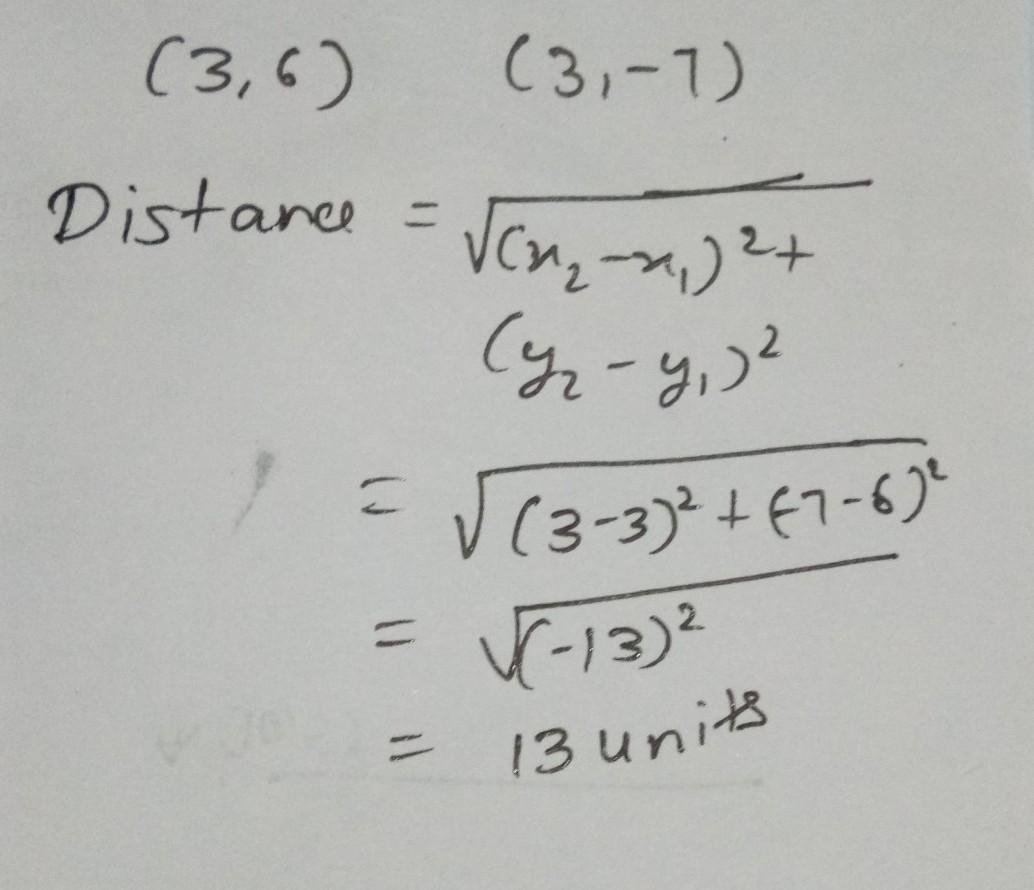 (3,6) (3,-7)
Distance = √(x₂-x₁)²+
(y₂-y₁)²
= √(3-3)²+(-7-6)²
= √(-13)²
= 13 units